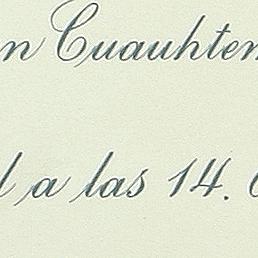 n Cuauhtem
l a las 14.